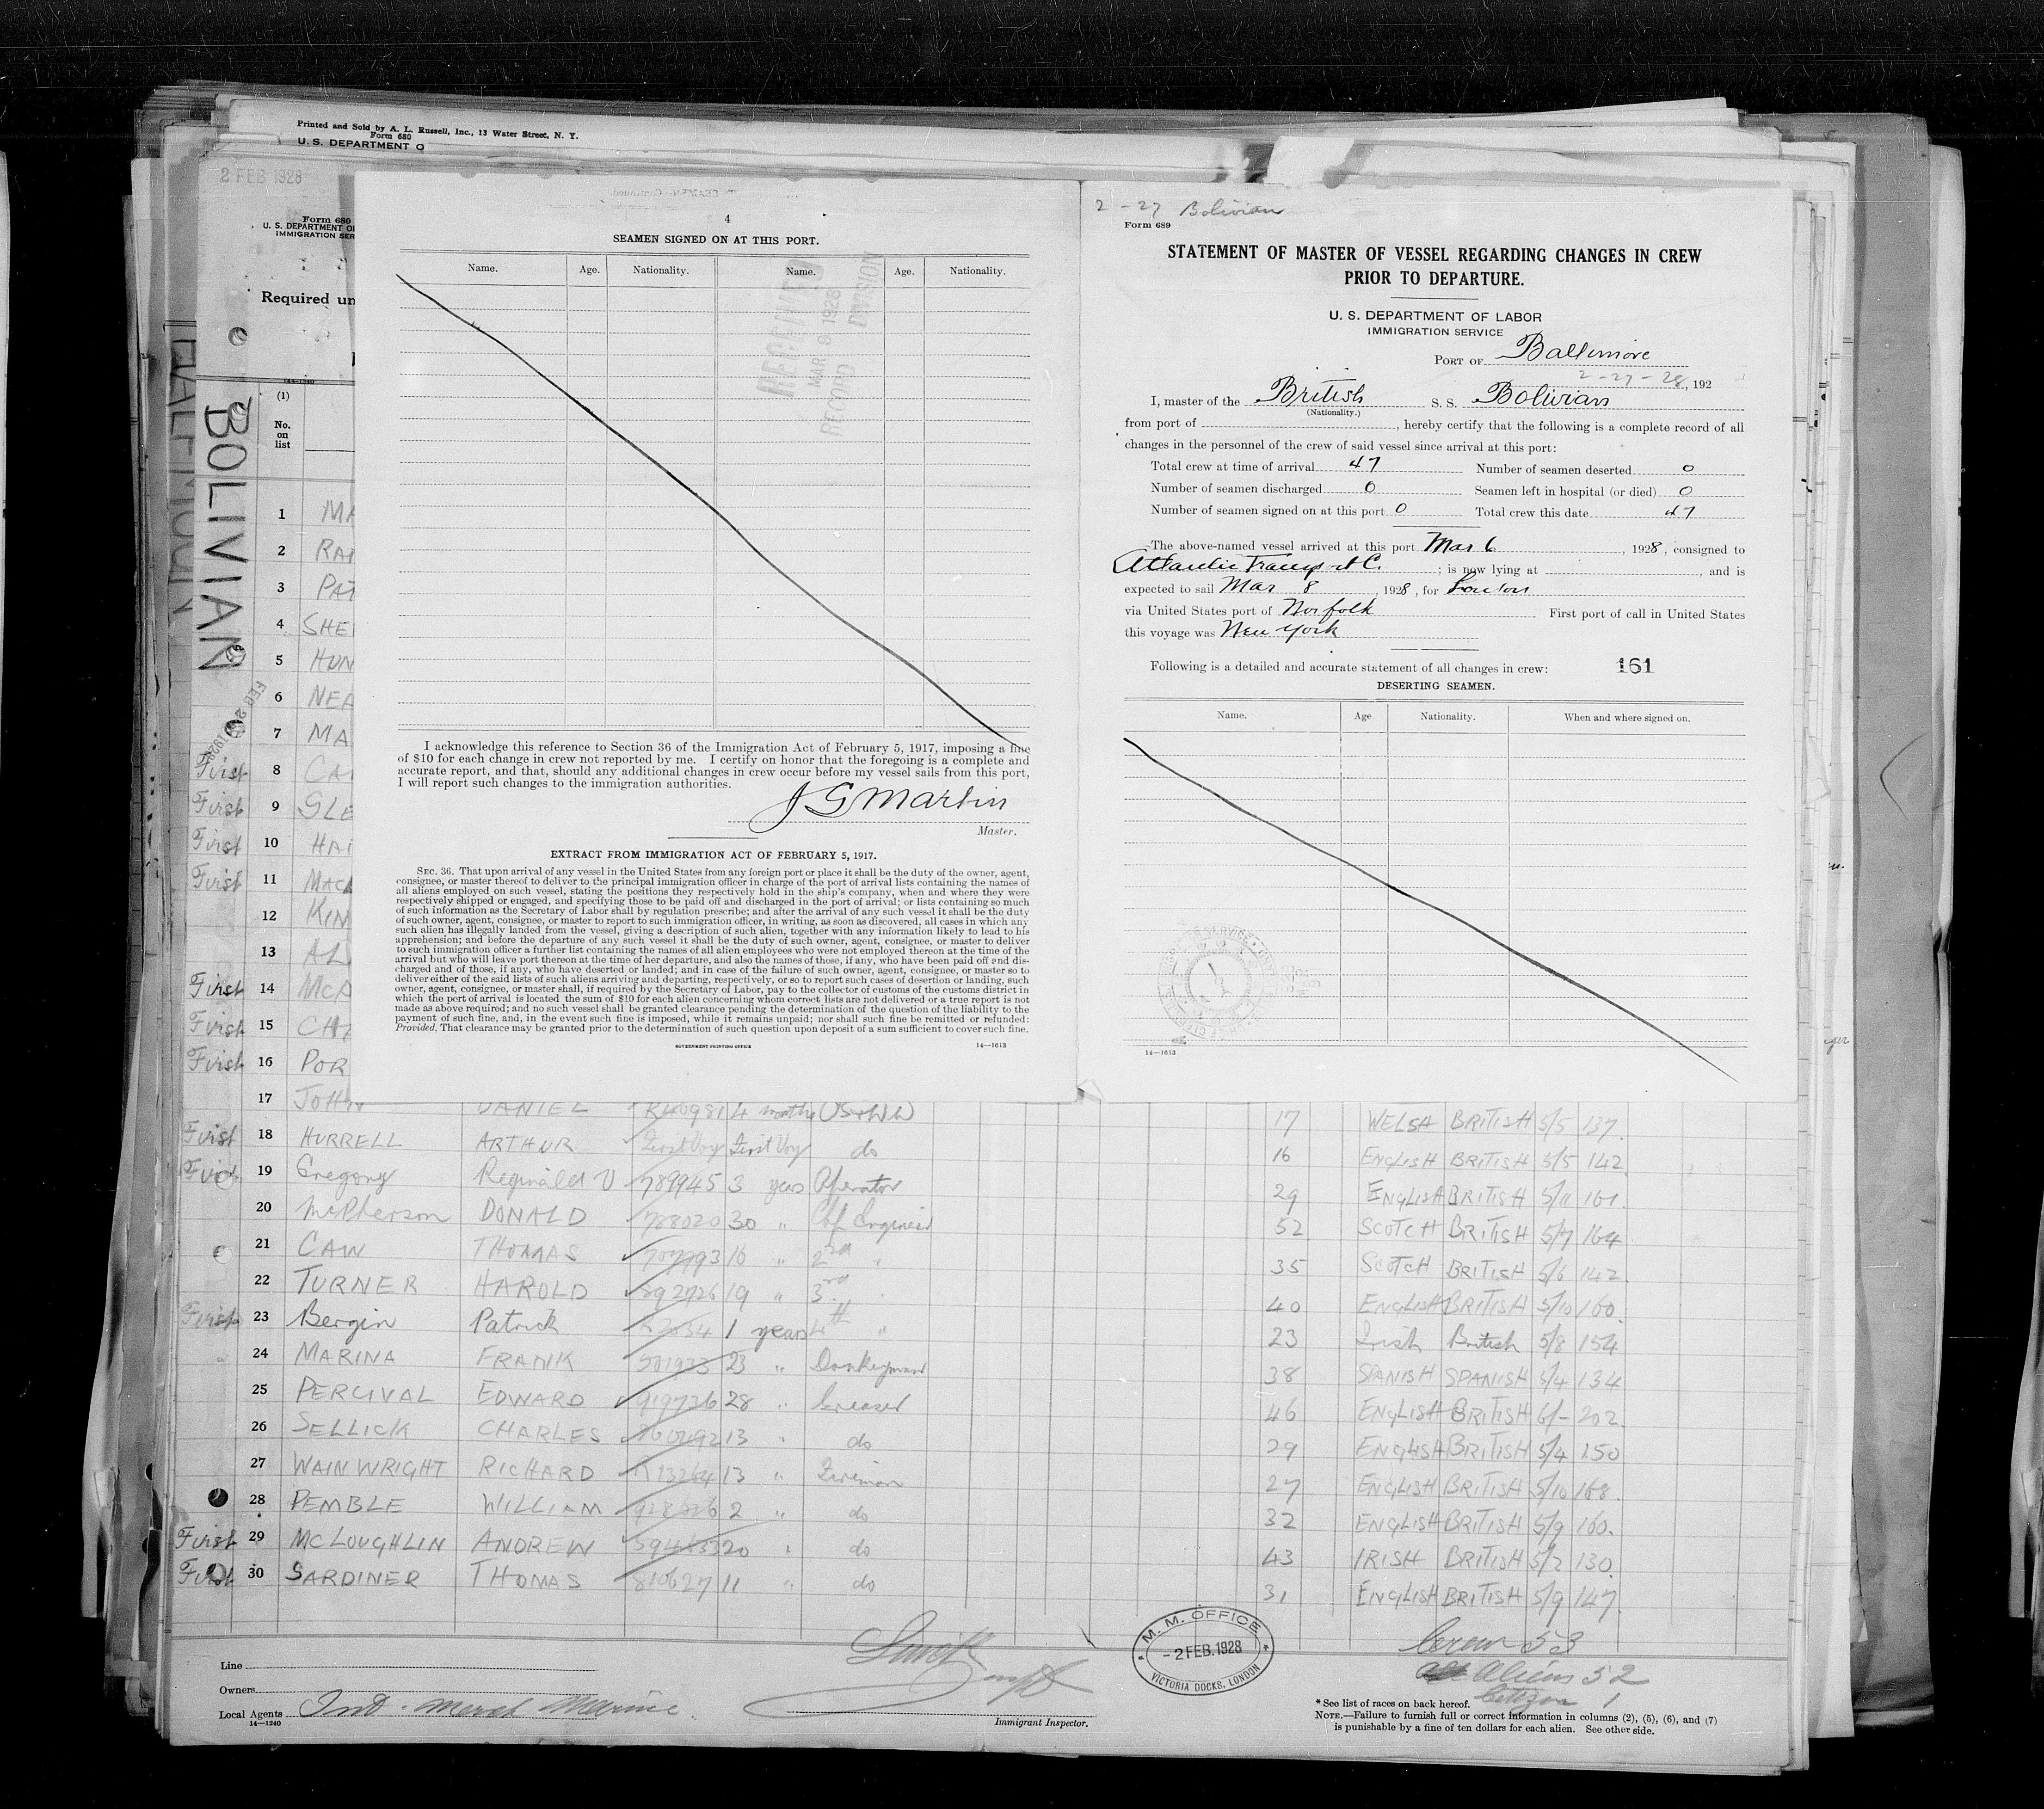 Printed and Sold by A. L. Russell, Inc., 13 Water Street, N. Y.
Form 680
U. S. DEPARTMENT O
2 FEB 1928
Form 680
U. S. DEPARTMENT OF
IMMIGRATION SER
Required un
14-1240
(1)
No.
on
list
BOLIVIAN
1 MA
2 RA
3 PAT
4 SHE
5 HUN
6 NEA
7 MA
First 8 CA
First 9 GLE
First 10 HAI
First 11 MACK
12 KIN
13 AL
First 14 McA
First 15 CHA
First 16 POR
4
SEAMEN SIGNED ON AT THIS PORT.
Name. Age. Nationality. Name. Age. Nationality.
RECEIVED
MAR 9 1928
RECORD DIVISION
I acknowledge this reference to Section 36 of the Immigration Act of February 5, 1917, imposing a fine
of $10 for each change in crew not reported by me. I certify on honor that the foregoing is a complete and
accurate report, and that, should any additional changes in crew occur before my vessel sails from this port,
I will report such changes to the immigration authorities.
J G Martin
Master.
EXTRACT FROM IMMIGRATION ACT OF FEBRUARY 5, 1917.
SEC. 36. That upon arrival of any vessel in the United States from any foreign port or place it shall be the duty of the owner, agent,
consignee, or master thereof to deliver to the principal immigration officer in charge of the port of arrival lists containing the names of
all aliens employed on such vessel, stating the positions they respectively hold in the ship's company, when and where they were
respectively shipped or engaged, and specifying those to be paid off and discharged in the port of arrival; or lists containing so much
of such information as the Secretary of Labor shall by regulation prescribe; and after the arrival of any such vessel it shall be the duty
of such owner, agent, consignee, or master to report to such immigration officer, in writing, as soon as discovered, all cases in which any
such alien has illegally landed from the vessel, giving a description of such alien, together with any information likely to lead to his
apprehension; and before the departure of any such vessel it shall be the duty of such owner, agent, consignee, or master to deliver
to such immigration officer a further list containing the names of all alien employees who were not employed thereon at the time of the
arrival but who will leave port thereon at the time of her departure, and also the names of those, if any, who have been paid off and dis-
charged and of those, if any, who have deserted or landed; and in case of the failure of such owner, agent, consignee, or master so to
deliver either of the said lists of such aliens arriving and departing, respectively, or so to report such cases of desertion or landing, such
owner, agent, consignee, or master shall, if required by the Secretary of Labor, pay to the collector of customs of the customs district in
which the port of arrival is located the sum of $10 for each alien concerning whom correct lists are not delivered or a true report is not
made as above required; and no such vessel shall be granted clearance pending the determination of the question of the liability to the
payment of such fine, and, in the event such fine is imposed, while it remains unpaid; nor shall such fine be remitted or refunded:
Provided, That clearance may be granted prior to the determination of such question upon deposit of a sum sufficient to cover such fine.
GOVERNMENT PRINTING OFFICE 14—1613
2 - 27 Bolivian
Form 689
STATEMENT OF MASTER OF VESSEL REGARDING CHANGES IN CREW
PRIOR TO DEPARTURE.
U. S. DEPARTMENT OF LABOR
IMMIGRATION SERVICE
PORT OF Baltimore
2-27-28, 192
I, master of the British S. S. Bolivian
(Nationality.)
from port of , hereby certify that the following is a complete record of all
changes in the personnel of the crew of said vessel since arrival at this port:
Total crew at time of arrival 47 Number of seamen deserted 0
Number of seamen discharged 0 Seamen left in hospital (or died) 0
Number of seamen signed on at this port 0 Total crew this date 47
The above-named vessel arrived at this port Mar 6, 1928, consigned to
Atlantic Transport C. ; is now lying at , and is
expected to sail Mar 8, 1928, for London
via United States port of Norfolk First port of call in United States
this voyage was New York
Following is a detailed and accurate statement of all changes in crew: 161
DESERTING SEAMEN.
Name. Age Nationality. When and where signed on.
14—1613
17 JOHN DANIEL R40981 4 months 17 WELSH BRITISH 5/5 137
First 18 HURRELL ARTHUR First Voy First Voy do 16 ENGLISH BRITISH 5/5 142
First 19 Gregory Reginald V 789945 3 years Operator 29 ENGLISH BRITISH 5/11 161
20 McPherson DONALD 788020 30 " Chf Engineer 52 SCOTCH BRITISH 5/7 164
21 CAW THOMAS 16 " 2nd " 35 SCOTCH BRITISH 5/6 142
22 TURNER HAROLD 892726 19 " 3rd 40 ENGLISH BRITISH 5/10 160
First 23 Bergin Patrick 1 years 4th " 23 Irish British 5/8 154
24 MARINA FRANK 501933 23 " Donkeyman 38 SPANISH SPANISH 5/4 134
25 PERCIVAL EDWARD 919736 28 " Greaser 46 ENGLISH BRITISH 6/- 202
26 SELLICK CHARLES 13 " do 29 ENGLISH BRITISH 5/4 150
27 WAINWRIGHT RICHARD 13 " Fireman 27 ENGLISH BRITISH 5/10 168
28 PEMBLE WILLIAM 2 " do 32 ENGLISH BRITISH 5/9 160
First 29 McLOUGHLIN ANDREW 20 " do 43 IRISH BRITISH 5/2 130
First 30 SARDINER THOMAS 810627 11 " do 31 ENGLISH BRITISH 5/9 147
Line
Owners
Local Agents Int. Merch Marine.
14—1240
Immigrant Inspector.
M. M. OFFICE
- 2 FEB. 1928
VICTORIA DOCKS, LONDON
Crew 53
Aliens 52
Citizen 1
* See list of races on back hereof.
NOTE.—Failure to furnish full or correct information in columns (2), (5), (6), and (7)
is punishable by a fine of ten dollars for each alien. See other side.